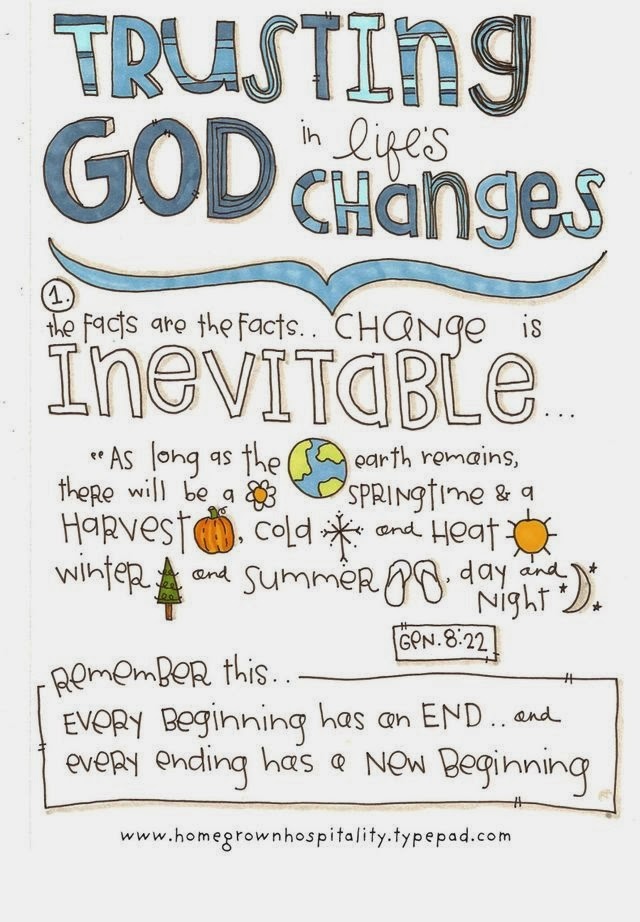 TRUSTing
GOD in life's
CHanges
1.
the Facts are the Facts.. CHANGe is
InEVITaBLE...
"As long as the earth remains,
there will be a SPRINGtime & a
Harvest, cold and Heat
winter and summer, day and
Night
Gen. 8:22
Remember this...
EVERY Beginning has an END.. and
every ending has a New Beginning
www.homegrownhospitality.typepad.com